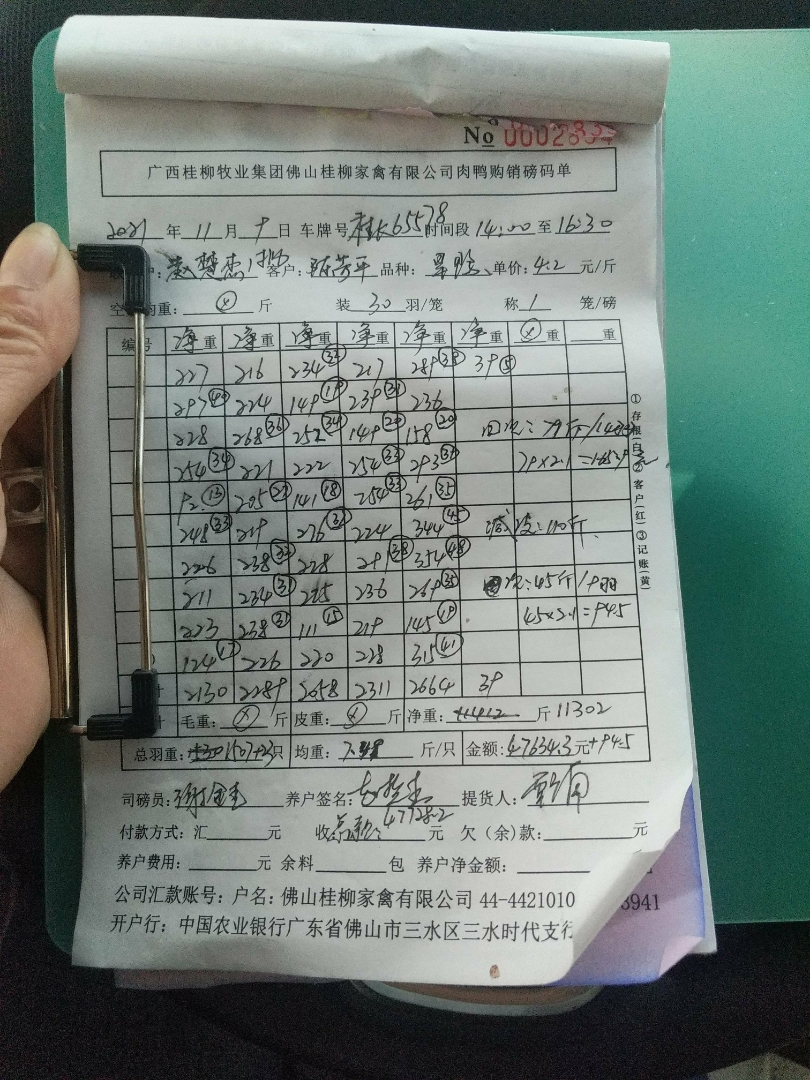 No 00028
广西桂柳牧业集团佛山桂柳家禽有限公司肉鸭购销磅码单
2021 年 11 月 9 日 车牌号 桂K65578 时间段 14:00 至 16:30
客户: 陈芳平 品种: 单价: 4.2 元/斤
均重: ⊗ 斤 装 30 羽/笼 称 1 笼/磅
编号 净重 净重 净重 净重 净重 净重 ⊗重 重
227 216 234(33) 217 289(38) 39(5)
297(40) 224 149(19) 239(31) 236
228 268(36) 252(34) 149(20) 158(20) 次: 79斤/14
254(34) 221 222 254(33) 293(39) 79×2.1=165.9元
92(13) 205(27) 141(18) 254(33) 261(35)
248(33) 219 236(32) 224 344(45) 减 :110斤
226 238(32) 228 291(38) 354(48)
211 234(31) 225 236 269(35) 次:45斤/9羽
223 238(31) 111(15) 219 145(19) 45×2.1=94.5
124(17) 226 220 228 315(41)
计 2130 2289 2058 2311 2664 39
计 毛重: ⊗ 斤 皮重: ⊗ 斤 净重: 11412 斤 11302
总羽重: 1507+23只 均重: 斤/只 金额: 47634.3元+94.5
司磅员: 养户签名: 提货人:
付款方式: 汇 元 收 47728.2 元 欠(余)款: 元
养户费用: 元 余料 包 养户净金额:
公司汇款账号: 户名: 佛山桂柳家禽有限公司 44-4421010 3941
开户行: 中国农业银行广东省佛山市三水区三水时代支行
①存根(白)②客户(红)③记账(黄)